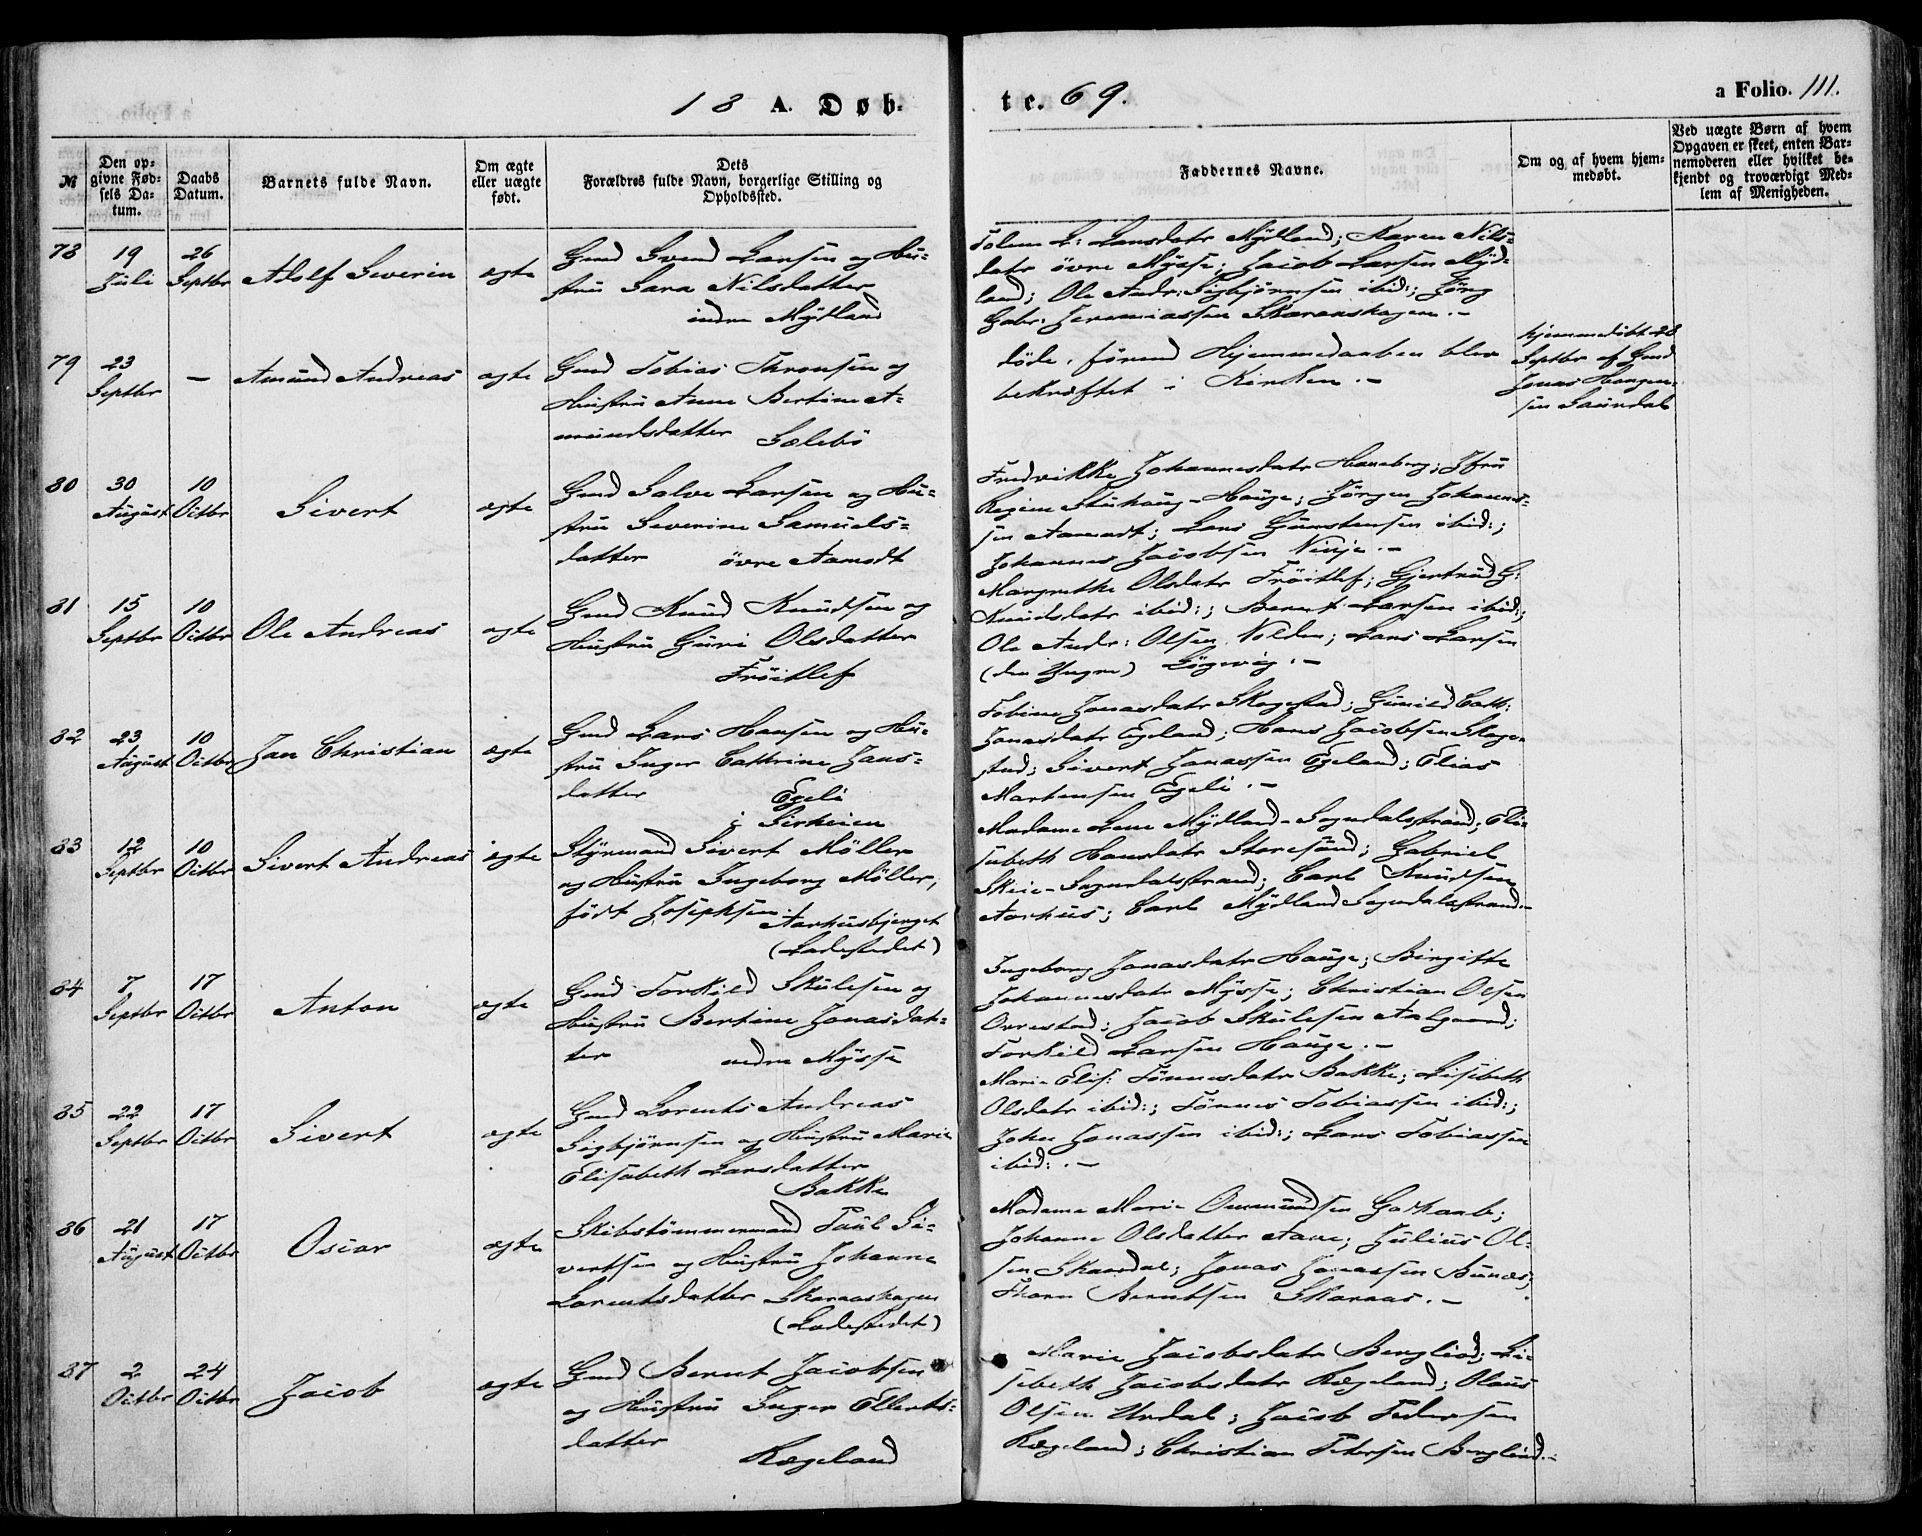 18 A. Døb-
te. 69.
a Folio. 111.
№
Den op-
givne Fød-
sels Da-
tum.
Daabs
Datum.
Barnets fulde Navn.
Om ægte
eller uægte
født.
Dets
Forældres fulde Navn, borgerlige Stilling og
Opholdssted.
Faddernes Navne.
Om og af hvem hjem-
medøbt.
Ved uægte Børn af hvem
Opgaven er skeet, enten Bar-
nemoderen eller hvilket be-
kjendt og troværdigt Med-
lem af Menigheden.
78
19
Juli
26
Septbr
Adolf Severin
ægte
Gmd Svend Larsen og Hu-
stru Sara Nilsdatter
indre Mydland
L: Larsdatr Mydland; Karen Nils-
datr övre Mysse; Jacob Larsen Myd-
land; Ole Andr: Sigbjørnsen ibid:; Jörg
Gabr. Jeremiassen Skaraashagen.-
79
23
Septbr
—
Amund Andreas
ægte
Gmd Tobias Thronsen og
Hustru Anne Bertine A-
mundsdatter Sælebö
döde, förend Hjemmedaaben blev
bekræftet i Kirken.-
hjemmedöbt 28
Septbr af Gmd
Jonas
sen Saurdal
80
30
August
10
Octbr
Sivert
ægte
Gmd Salve Larsen og Hu-
stru Severine Samuels-
datter övre Aamodt
Fredrikke Johannesdatr Haneberg; Jfru
Regine Stuhaug-Hauge; Jörgen Johannes-
sen Aamodt; Lars Gunstensen ibid:;
Johannes Jacobsen
81
15
Septbr
10
Octbr
Ole Andreas
ægte
Gmd Knud Knudsen og
Hustru Guri Olsdatter
Fröitlef
Margrethe Olsdatr Fröitlef; Gjertrud G:
Knudsdatr ibid:; Bernt Larsen ibid:;
Ole Andr: Olsen Nolden; Lars Larsen
(den Yngre) Lögevig.-
82
23
August
10
Octbr
Jan Christian
ægte
Gmd Lars Hansen og Hu-
stru Inger Cattrine Jans-
datter Egeli
i Sirheien
Tobine Jonasdatr Skogestad; Gunild Catt:
Jonasdatr Egeland; Hans Jacobsen Skoge-
stad; Sivert Jonassen Egeland; Elias
Martensen Egeli.-
83
12
Septbr
10
Octbr
Sivert Andreas
ægte
Styrmand Sivert Möller
og Hustru Ingeborg Möller,
födt Josephsen. Aarhusbjerget
(Ladestedet)
Madame Lene Mydland-Sogndalstrand; Eli-
sabeth Hansdatr Storesund; Gabriel
Skeie-Sogndalstrand; Carl Knudsen
Aarhus; Carl Mydland Sogndalstrand.-
84
7
Septbr
17
Octbr
Anton
ægte
Gmd Torkild Skulesen og
Hustru Bertine Jonasdat-
ter nedre Mysse
Ingeborg Jonasdatr Hauge; Birgitte
Johannesdatr Mysse; Christian Olsen
Orrestad; Jacob Skulesen Aalgaard;
Torkild Larsen Hauge.-
85
22
Septbr
17
Octbr
Sivert
ægte
Gmd Lorents Andreas
Sigbjörnsen og Hustru Marie
Elisabeth Larsdatter
Bakke
Marie Elis: Tönnesdatr Bakke; Lisebeth
Olsdatr ibid:; Tönnes Tobiassen ibid:;
John Jonassen ibid:; Lars Tobiassen
ibid:.-
86
21
August
17
Octbr
Oscar
ægte
Skibstömmermand Paul Si-
vertsen og Hustru Johanne
Lorentsdatter Skaraashagen
(Ladestedet)
Madame Marie Ommundsen Godhaab;
Johanne Olsdatter Aase; Julius Ol-
sen Skaardal; Jonas Jonassen Bunæs;
Thore Berntsen Skaraas.-
87
2
Octbr
24
Octbr
Jacob
ægte
Gmd Bernt Jacobsen
og Hustru Inger Ellerts-
datter
Rægeland
Marie Jacobsdatr Bergliod; Li-
sebeth Jacobsdatr Rægeland; Olaus
Olsen Urdal; Jacob Pedersen
Rægeland; Christian Petersen Bergliod.-